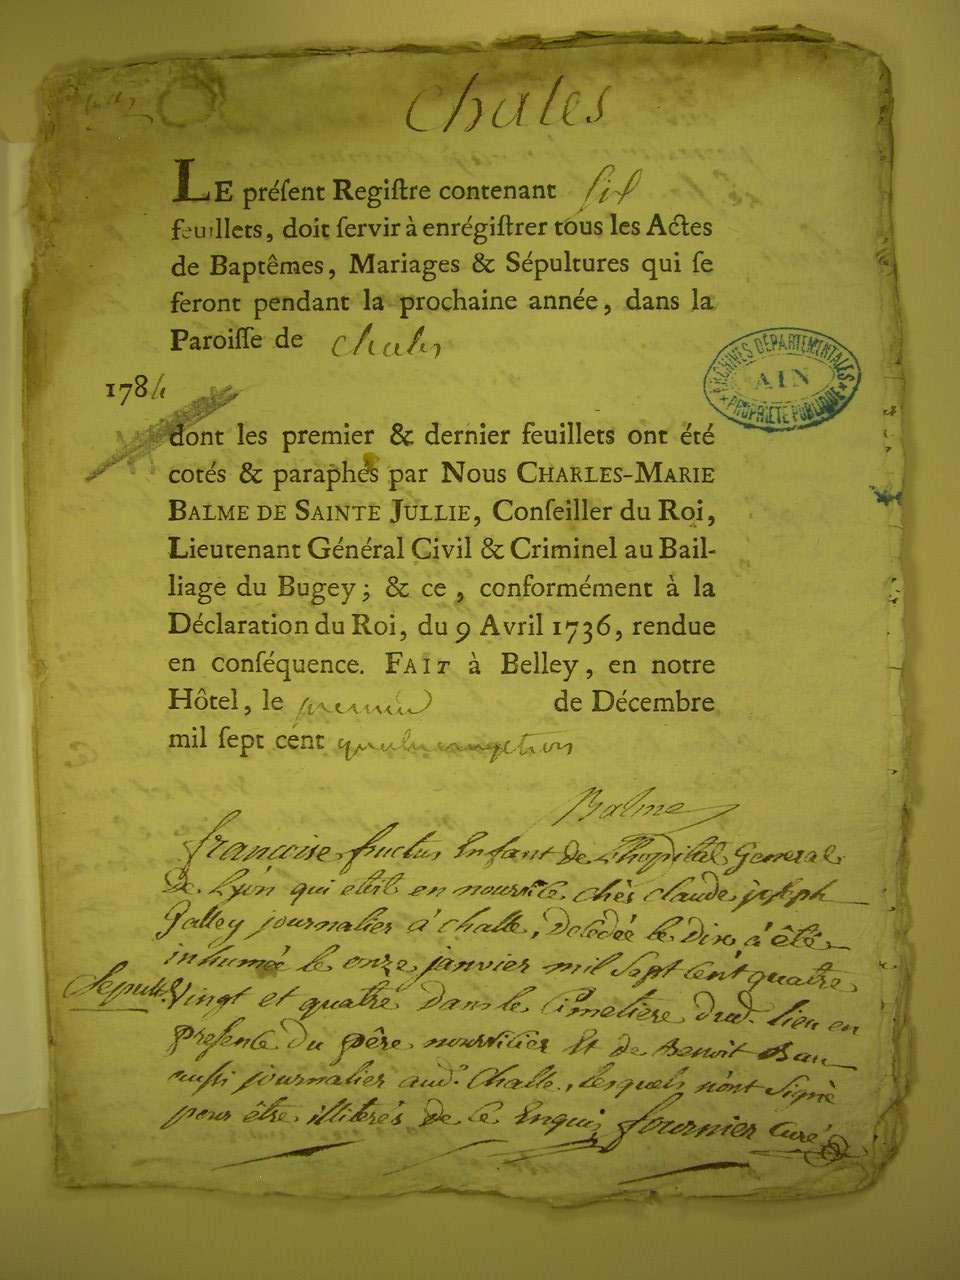 Chales
LE préſent Regiſtre contenant six
feuillets, doit ſervir à enrégiſtrer tous les Actes
de Baptêmes, Mariages & Sépultures qui ſe
feront pendant la prochaine année, dans la
Paroiſſe de Chales
1784
dont les premier & dernier feuillets ont été
cotés & paraphés par Nous CHARLES-MARIE
BALME DE SAINTE JULLIE, Conſeiller du Roi,
Lieutenant Général Civil & Criminel au Bail-
liage du Bugey; & ce, conformément à la
Déclaration du Roi, du 9 Avril 1736, rendue
en conſéquence. FAIT à Belley, en notre
Hôtel, le premier de Décembre
mil ſept cent quatre vingt trois
ARCHIVES DÉPARTEMENTALES
AIN
PROPRIÉTÉ PUBLIQUE
Balme
françoise fructus Enfant de L'hopital General
De Lyon qui etait en nourrice chès claude joseph
Galley journalier à challe, Decédée le Dix, à été
inhumée le onze janvier mil Sept Cent quatre
Sepult.
Vingt et quatre Dans le Cimetiere dud. lieu en
presence Du père nourricier Et de Benoit
aussi journalier aud. Challe, lesquels n'ont Signé
pour être illiterés de ce Enquis fournier Curé